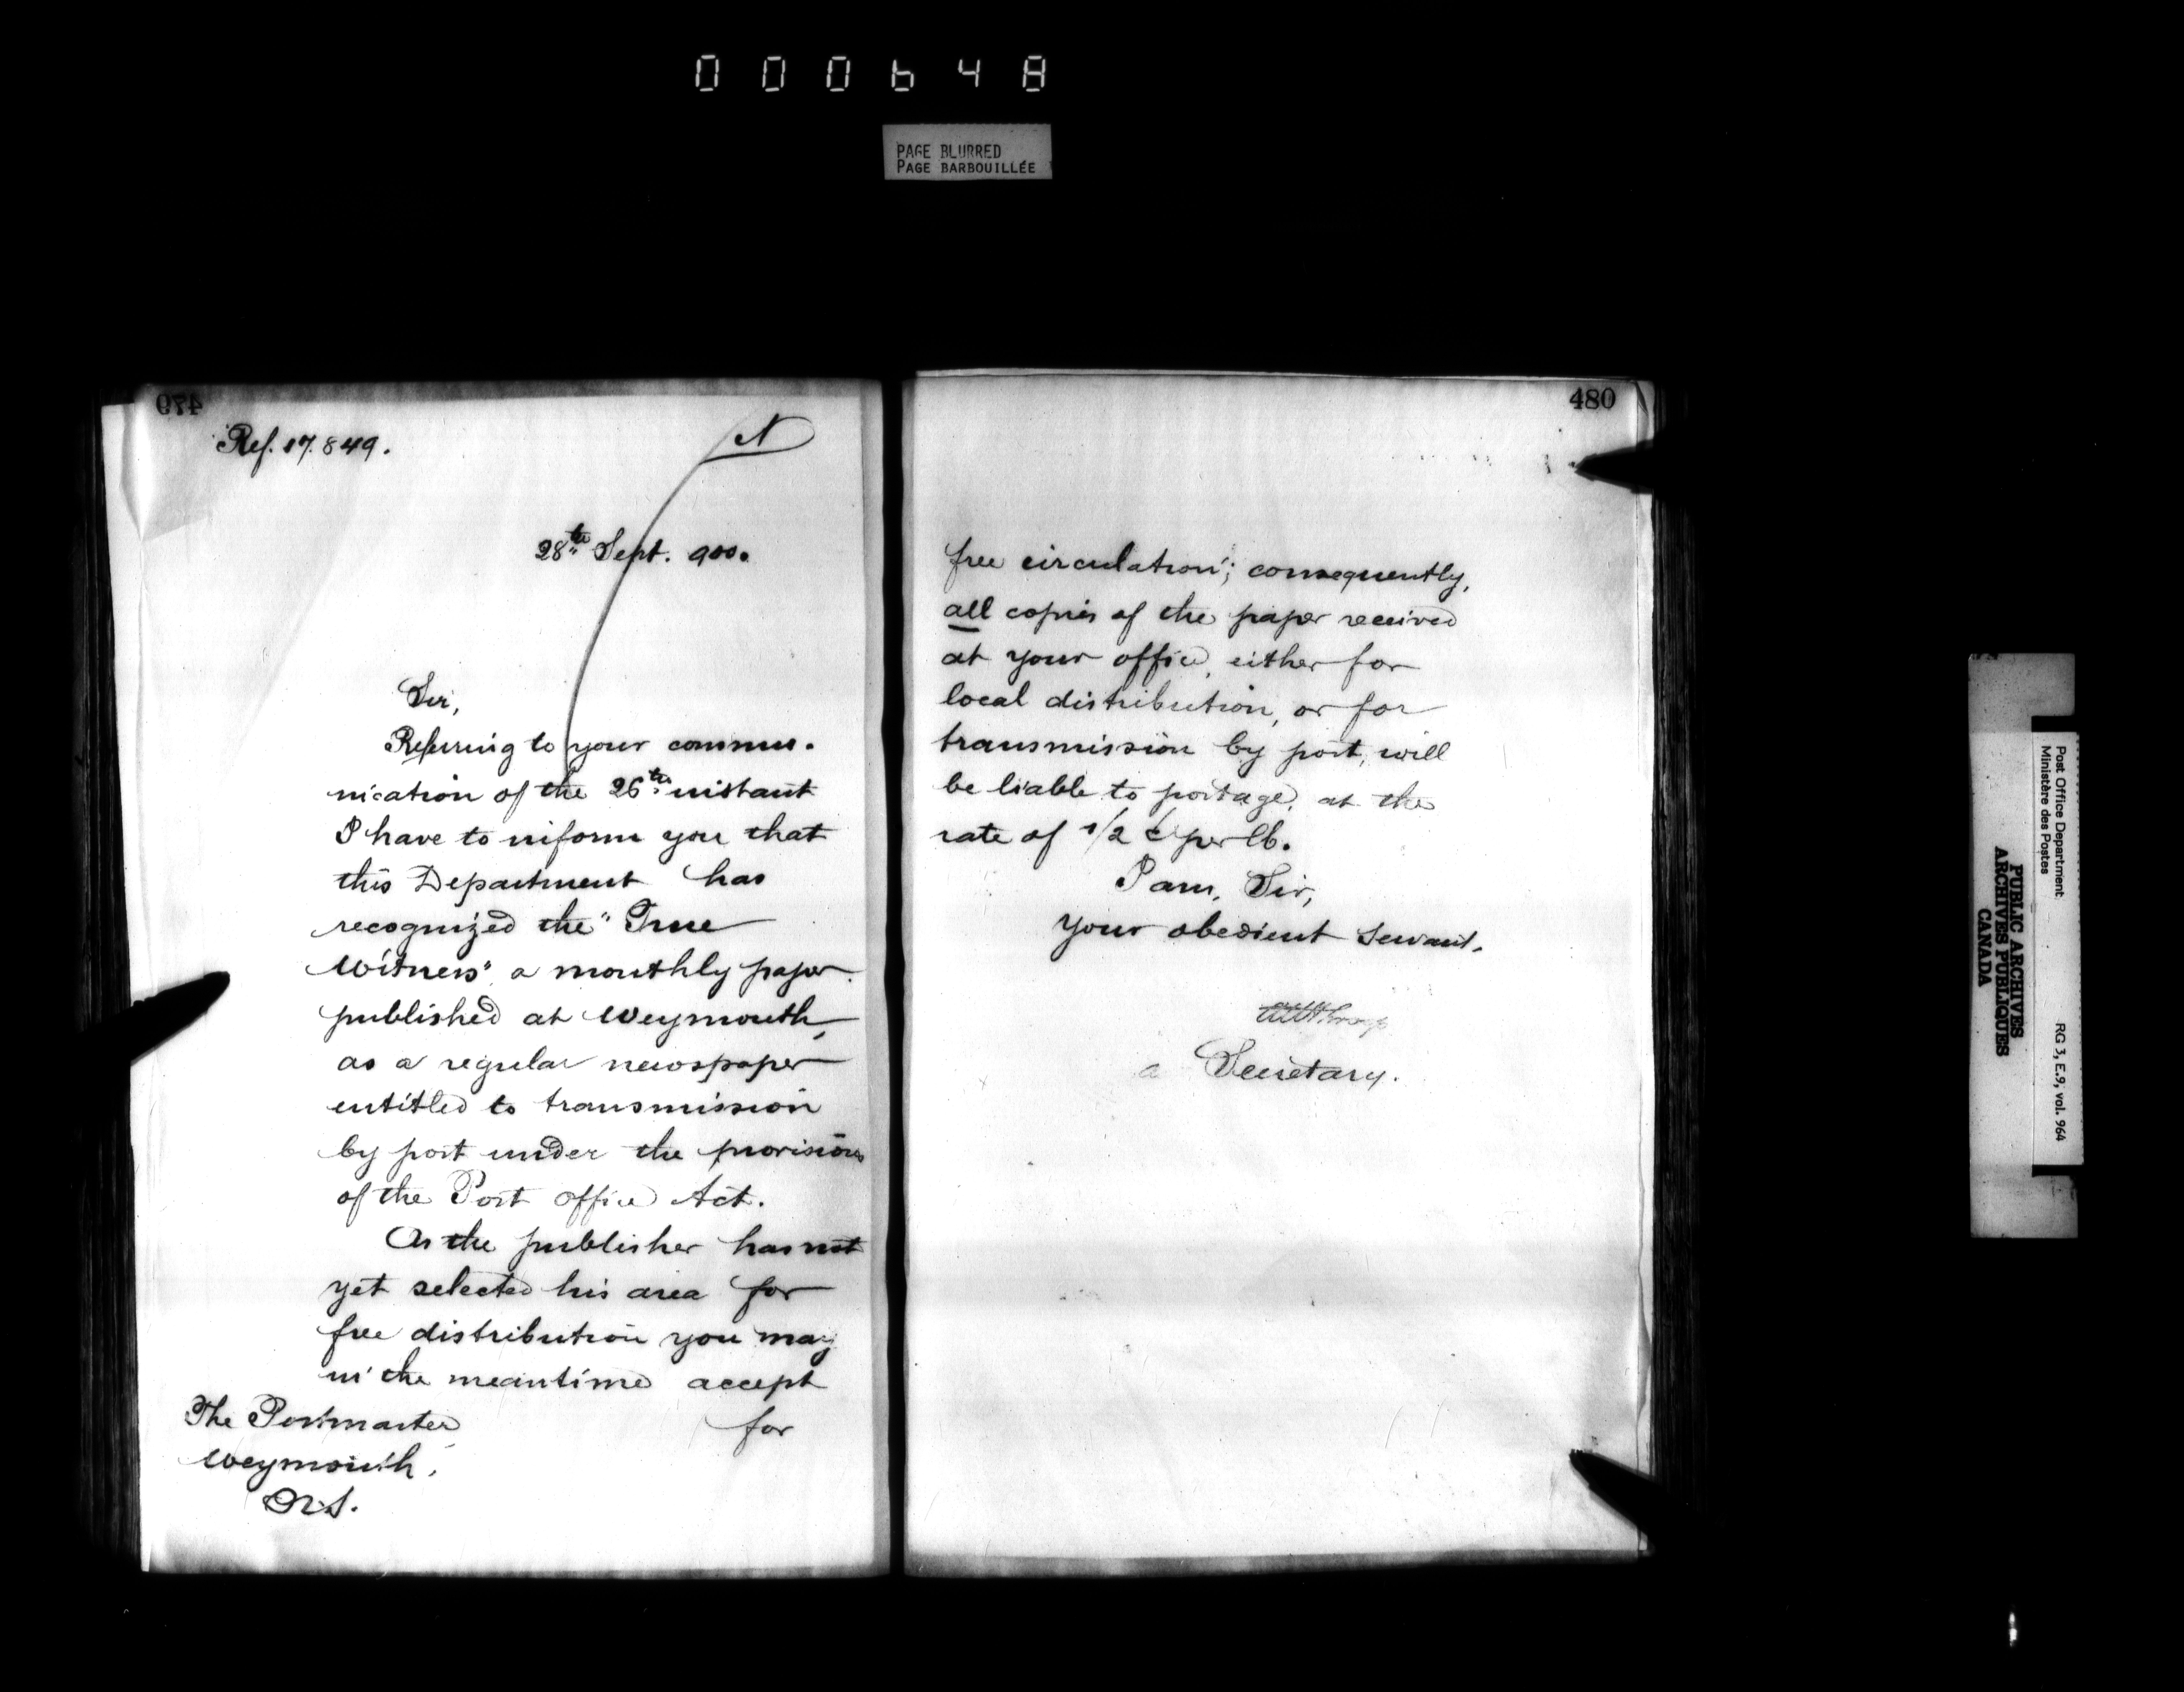 000648
PAGE BLURRED
PAGE BARBOUILLÉE
479
Ref. 17.849.
N
28th Sept. 900.
Sir,
Referring to your commu-
nication of the 26th instant
I have to inform you that
this Department has
recognized the "True
Witness" a monthly paper
published at Weymouth,
as a regular newspaper
entitled to transmission
by post under the provisions
of the Post Office Act.
As the publisher has not
yet selected his area for
free distribution you may
in the meantime accept
for
The Postmaster
Weymouth,
N.S.
480
free circulation; consequently,
all copies of the paper received
at your office, either for
local distribution, or for
transmission by post, will
be liable to postage, at the
rate of 1/2 ¢ per lb.
I am, Sir,
Your obedient servant.
a Secretary.
Post Office Department
Ministère des Postes
RG 3, E.9, vol. 964
PUBLIC ARCHIVES
ARCHIVES PUBLIQUES
CANADA